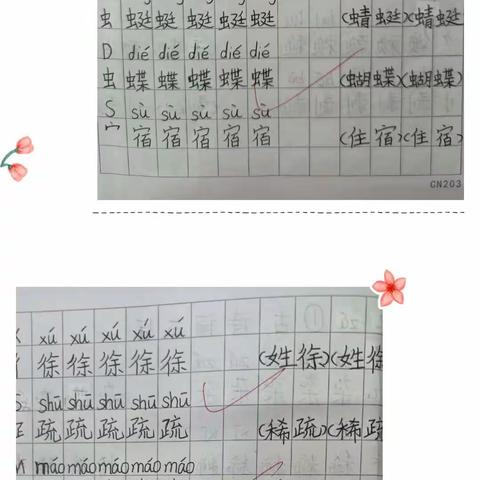 虫 蜓 蜓 蜓 蜓 蜓 (蜻蜓)(蜻蜓
D dié dié dié dié dié
虫 蝶 蝶 蝶 蝶 蝶 (蝴蝶)(蝴蝶)
S sù sù sù sù sù
宀 宿 宿 宿 宿 宿 (住宿)(住宿)
CN203
xú xú xú xú xú
徐 徐 徐 徐 徐 (姓徐)(姓徐
S shū shū shū shū shū
疏 疏 疏 疏 疏 (稀疏)(稀疏
M máo máo máo máo máo